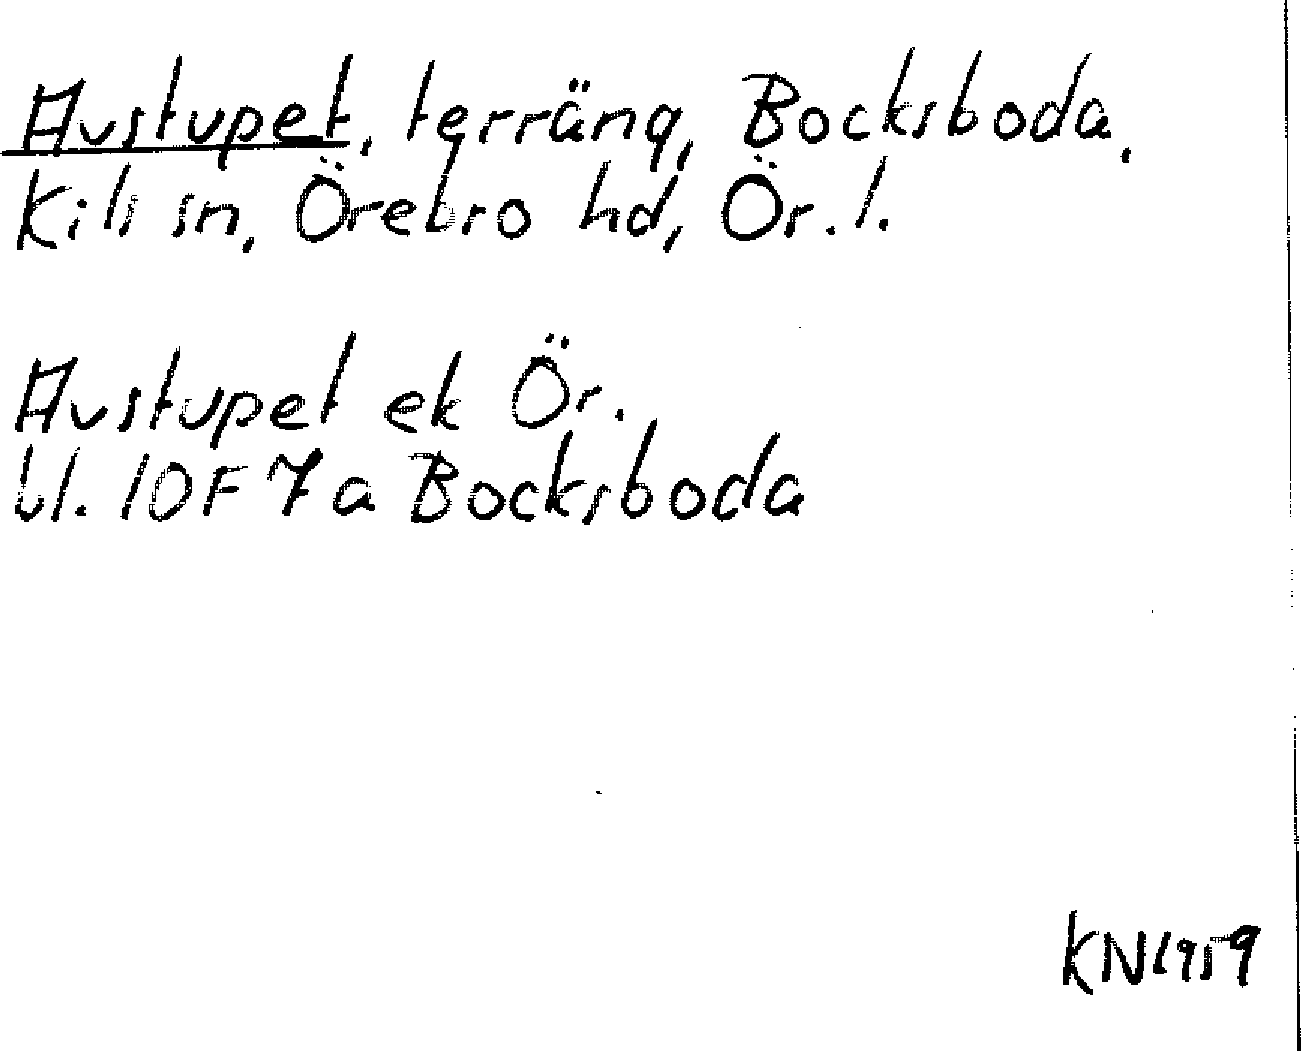 Avstupet, terräng, Bocksboda,
Kils sn, Örebro hd, Ör. l.
Avstupet ek Ör.
bl. 10F 7a Bocksboda
KN 1959